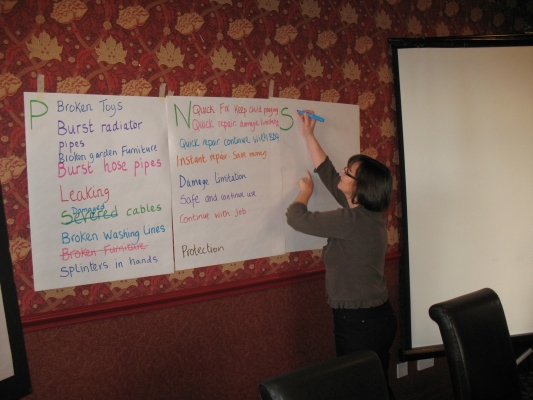 P
Broken Toys
Burst radiator
pipes
Broken garden Furniture
Burst hose pipes
Leaking
Damaged
Severed cables
Broken Washing Lines
Broken Furniture
Splinters in hands
N
Quick Fix Keep Child playing
Quick repair damage limitation
Quick repair continue with
Instant repair. Save money
Damage limitation
Safe and continue use
Continue with job
Protection
S